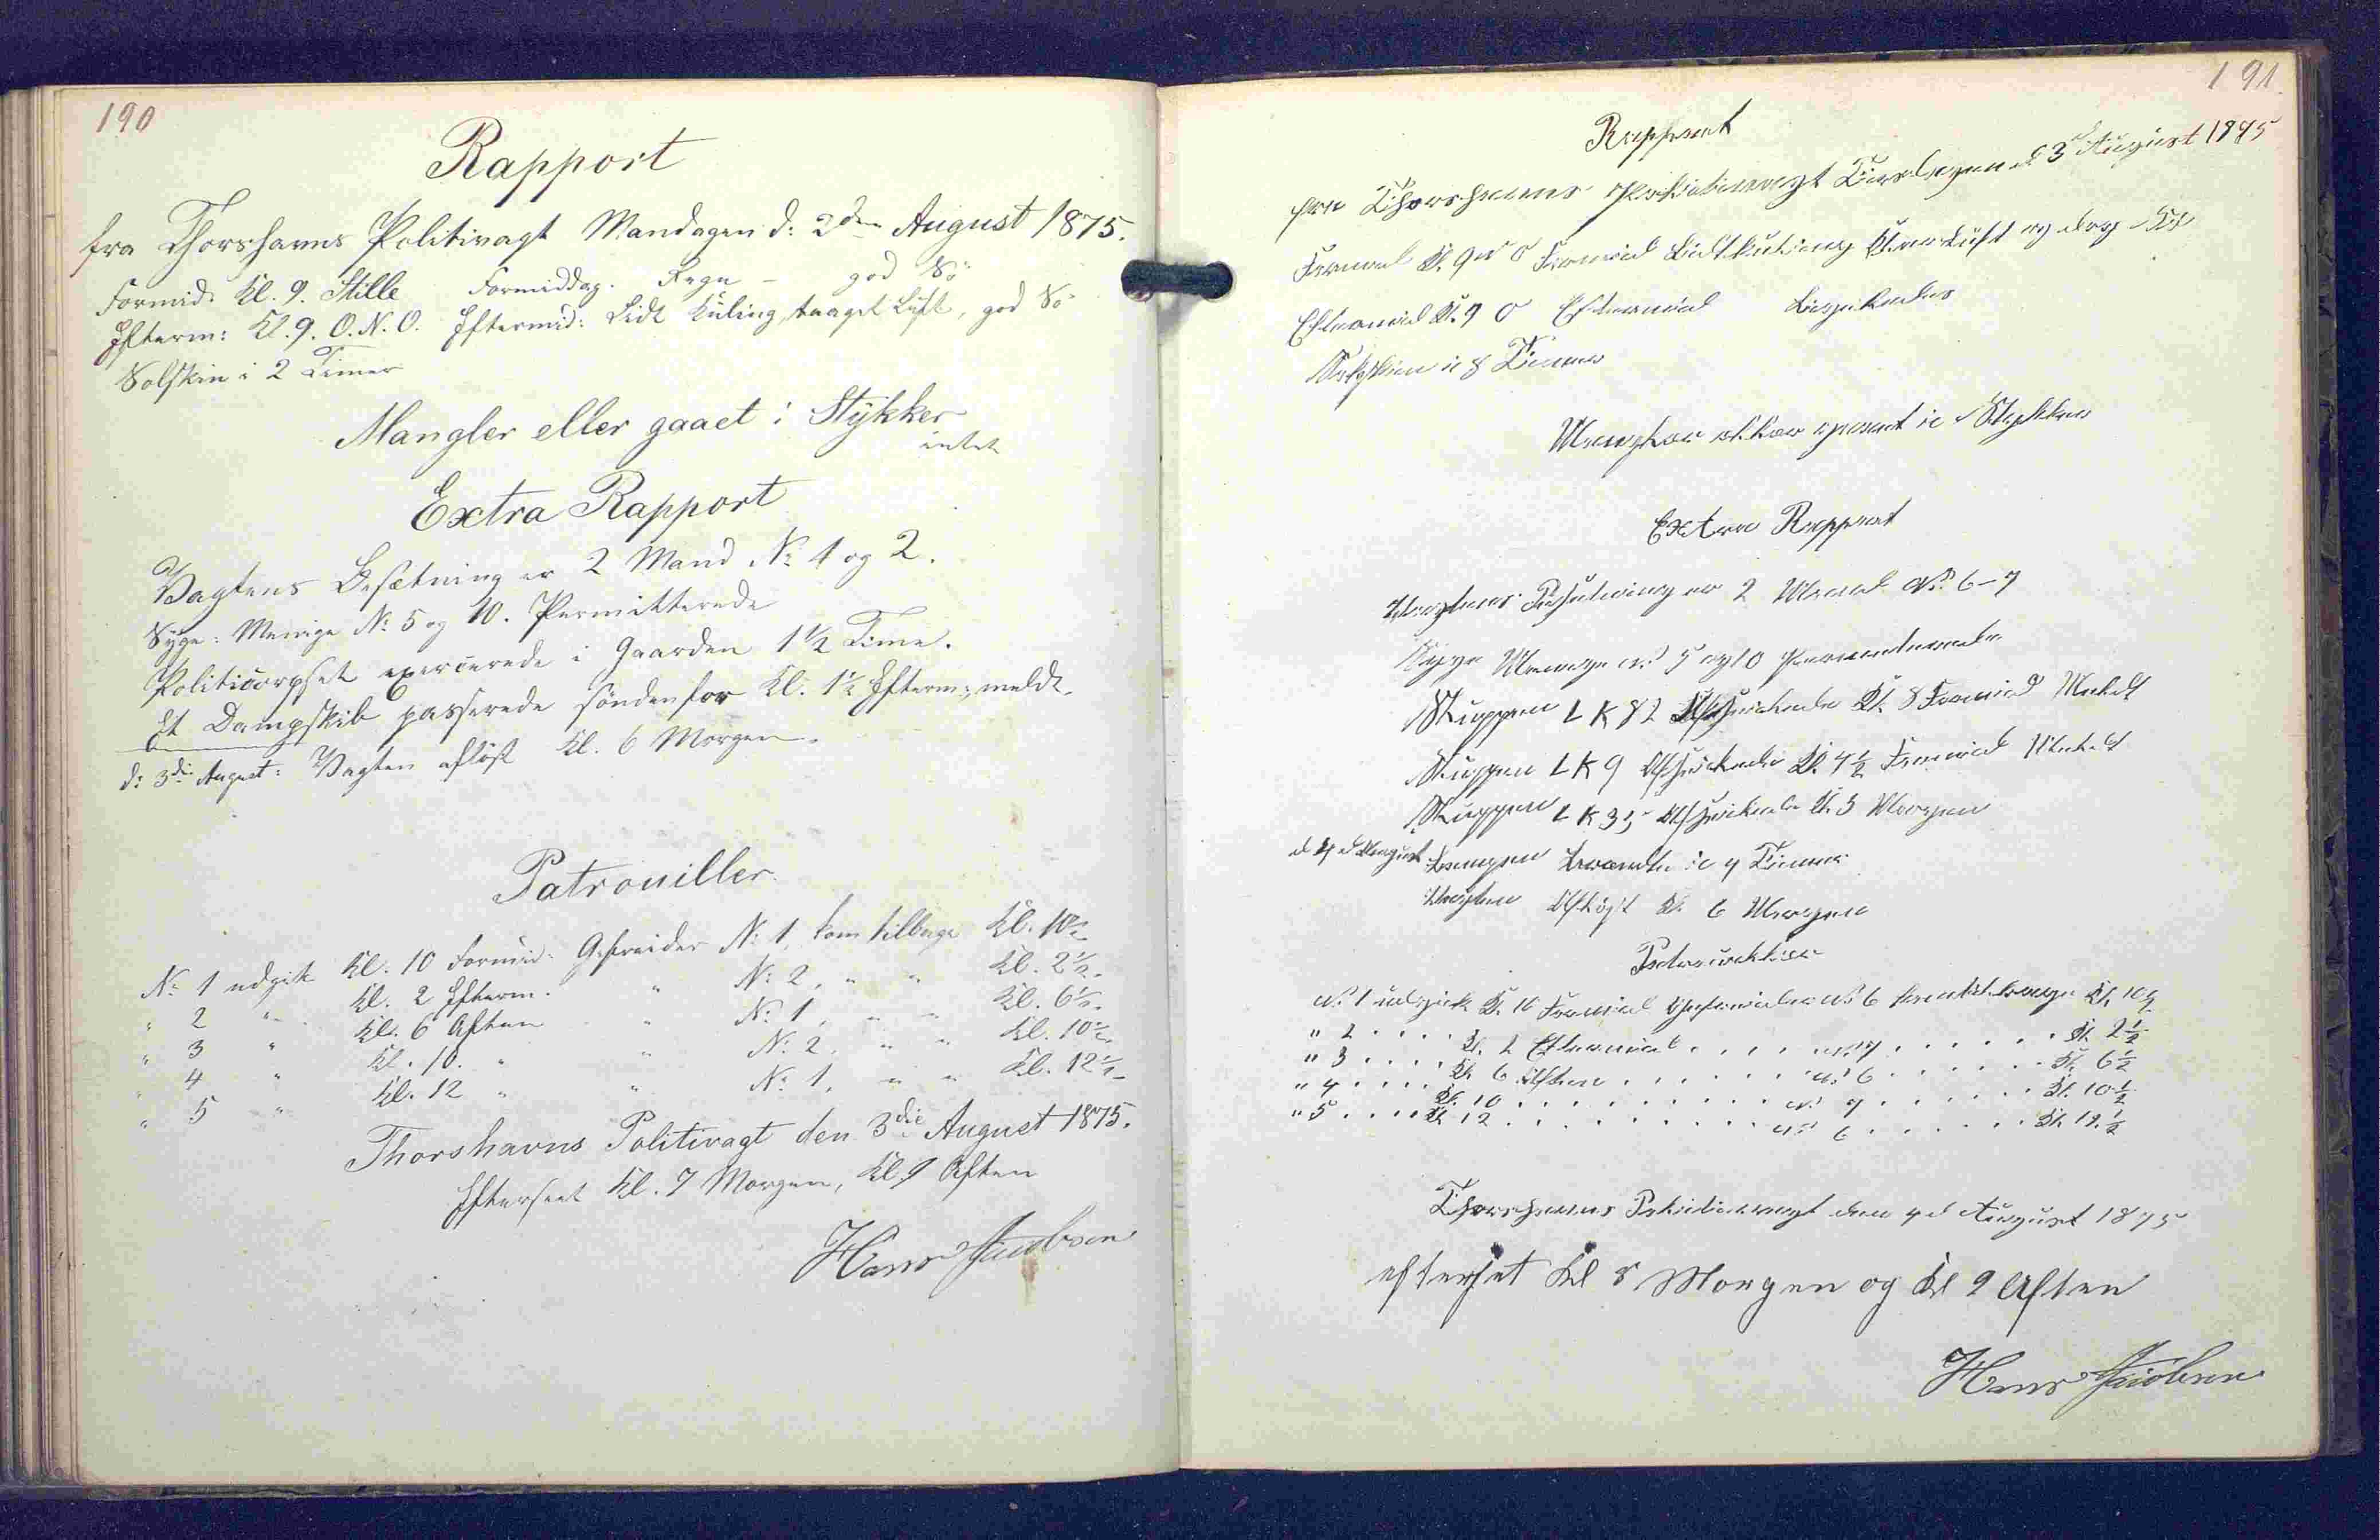 190
Rapport
fra Thorshavns Politivagt Mandagen d: 2den August 1875.
Formid: Kl. 9. Stille Formiddag. Regn – god Sö
Efterm: Kl. 9. O.N.O. Eftermid: Lidt Kuling, taaget Luft, god Sö
Solskin i 2 Timer
Mangler eller gaaet i Stykker
intet
Extra Rapport
Vagtens Besætning er 2 Mand No 1 og 2.
Syge: Menige No 5 og 10. Permitterede
Politicorpset exercerede i Gaarden 1 1/2 Time.
Et Dampskib passerede söndenfor Kl. 1 1/2 Efterm: meldt.
d: 3die August: Vagten aflöst Kl. 6 Morgen.
Patrouiller
No 1 udgik Kl. 10 Formid: Gefreider No 1, kom tilbage Kl. 10 1/2
" 2 " Kl. 2 Efterm. " No 2, " " Kl. 2 1/2.
" 3 " Kl. 6 Aften " No 1, " " Kl. 6 1/2.
" 4 " Kl. 10. " " No 2, " " Kl. 10 1/2.
" 5 " Kl. 12 " " No 1, " " Kl. 12 1/2
Thorshavns Politivagt den 3die August 1875.
Efterseet Kl. 7 Morgen, Kl 9 Aften
Hans Jacobsen
191
Rapport
fra Thorshavns Politivagt Tirsdagen d 3 August 1875
Formid Kl. 9 O Formid Lidt Kuling Klar Luft og
Eftermid Kl. 9 O Eftermid Ligeledes
Solskin i 8 Timer
Mangler eller gaaet i Stykker
Extra Rapport
Vagtens Besætning er 2 Mand No 6–7
Syge Menige No 5 og 10 permitterede
Sluppen L K 82 Afseilede Kl. 8 Formid Meldt
Sluppen L K 9 Afseilede Kl. 4 1/2 Formid Meldt
Sluppen L K 35 Afseilede Kl. 3 Morgen
d 4 d August Lampen brændte i 4 Timer
Vagten Aflöst Kl. 6 Morgen
Patrouiller
No 1 udgik Kl. 10 Formid Gefreider No 6 kom tilbage Kl. 10 1/2
" 2 . . . . Kl. 2 Eftermid . . . . No 7 . . . . . . Kl. 2 1/2
" 3 . . . . Kl. 6 Aften . . . . . . No 6 . . . . . . Kl. 6 1/2
" 4 . . . . Kl. 10 . . . . . . . . . No 7 . . . . . . Kl. 10 1/2
" 5 . . . . Kl. 12 . . . . . . . . . No 6 . . . . . . Kl. 12 1/2
Thorshavns Politivagt den 4 d August 1875
efterset Kl 8 Morgen og Kl 9 Aften
Hans Jacobsen